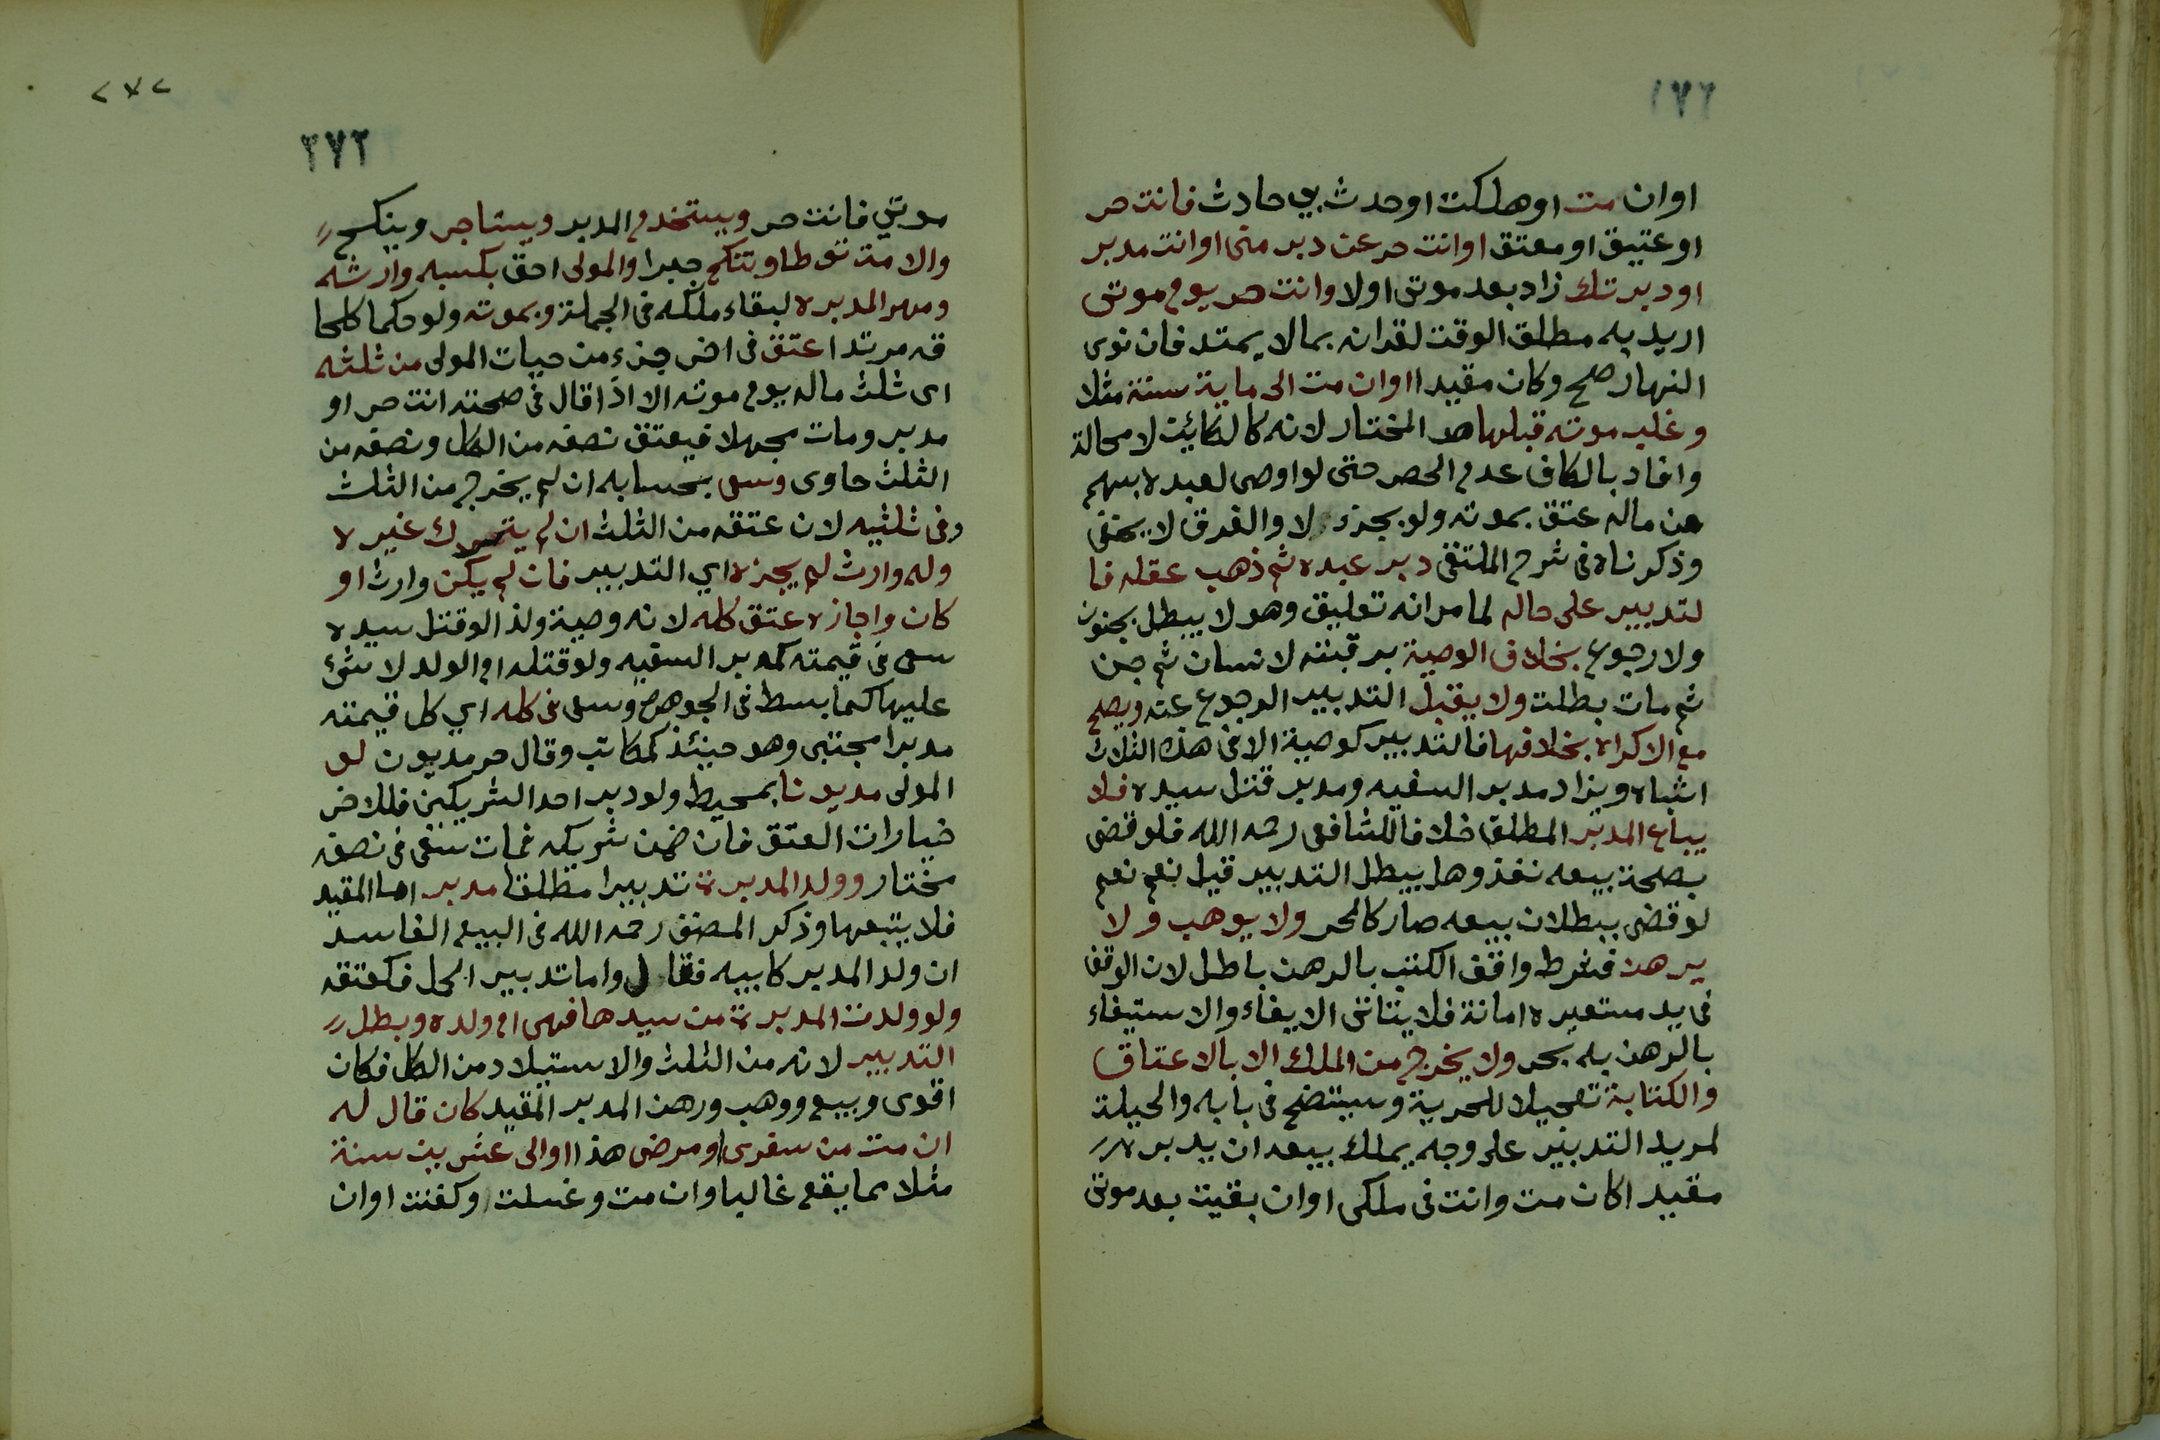 ١٧٢
اوان مت اوهلكت اوحدث بي حادث فانت حر
او عتيق او معتق اوانت حر عن دبر منى اوانت مدبر
اودبرتك زاد بعد موتى اولا وانت حر يوم موتى
اريد به مطلق الوقت لقرانه بمالا يمتد فان نوى
النهار صح وكان مقيدا اوان مت الى ماية سنة مثلا
وغلب موته قبلها هو المختار لانه كالكائن لا محالة
وافاد بالكاف عدم الحصر حتى لو اوصى لعبده بسهم
من ماله عتق بموته ولو بجزء لا والفرق لا يخفى
وذكرناه فى شرح الملتقى دبر عبده ثم ذهب عقله فا
لتدبير على حاله لما مر انه تعليق وهو لا يبطل بجنون
ولا رجوع بخلاف الوصية برقبته لانسان ثم جن
ثم مات بطلت ولا يقبل التدبير الرجوع عنه ويصح
مع الاكراه بخلافها فالتدبير كوصية الا فى هذه الثلاث
اشباه ويزاد مدبر السفيه ومدبر قتل سيده فلا
يباع المدبر المطلق خلافا للشافعى رحمه الله فلو قضى
بصحة بيعه نفذ وهل يبطل التدبير قيل نعم نعم
لو قضى ببطلان بيعه صار كالحر ولا يوهب ولا
يرهن فشرط واقف الكتب بالرهن باطل لان الوقف
فى يد مستعيره امانة فلا يتاتى الايفاء والاستيفاء
بالرهن به بحر ولا يخرج من الملك الا بالاعتاق
والكتابة تعجيلا للحرية وسيتضح فى بابه والحيلة
لمريد التدبير على وجه يملك بيعه ان يدبره
مقيدا كان مت وانت فى ملكى اوان بقيت بعد موتى
٢٧٢
٢٧٢
موتي فانت حر ويستخدم المدبر ويستاجر وينكح
والامة توطا وتنكح جبرا والمولى احق بكسبه وارشه
ومهر المدبره لبقاء ملكه فى الجملة وبموته ولو حكما كلحا
قه مرتدا عتق فى اخر جزء من حيات المولى من ثلثه
اى ثلث ماله يوم موته الا اذا قال فى صحته انت حر او
مدبر ومات مجهلا فيعتق نصفه من الكل ونصفه من
الثلث حاوى وسعى بحسابه ان لم يخرج من الثلث
وفى ثلثيه لان عتقه من الثلث ان لم يترك غيره
وله وارث لم يجزه اي التدبير فان لم يكن وارث او
كان واجازه عتق كله لانه وصية ولذا لو قتل سيده
سعى فى قيمته كمدبر السفيه ولو قتله ام الولد لا شئ
عليها كما بسط فى الجوهره وسعى فى كله اي كل قيمته
مدبرا مجتبى وهو حينئذ كمكاتب وقال حر مديون لو
المولى مديونا بمحيط ولو دبر احد الشريكين فللاخر
خيارات العتق فان ضمن شريكه فمات سعى فى نصفه
مختار وولد المدبرة تدبيرا مطلقا مدبر اما المقيد
فلا يتبعها وذكر المصنف رحمه الله فى البيع الفاسد
ان ولد المدبر كابيه فقال واما تدبير الحمل فكعتقه
ولو ولدت المدبرة من سيدها فهى ام ولده وبطل
التدبير لانه من الثلث والاستيلاد من الكل فكان
اقوى وبيع ووهب ورهن المدبر المقيد كان قال له
ان مت من سفرى او مرضى هذا اوالى عشرين سنة
مثلا مما يقع غالبا وان مت وغسلت وكفنت اوان